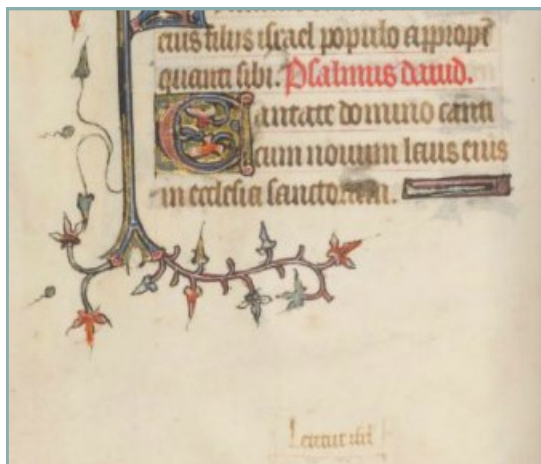 eius filiis israel populo appropĩ
quanti sibi. Psalmus dauid.
Cantate domino canti
cum nouum laus eius
in ecclesia sanctorum.